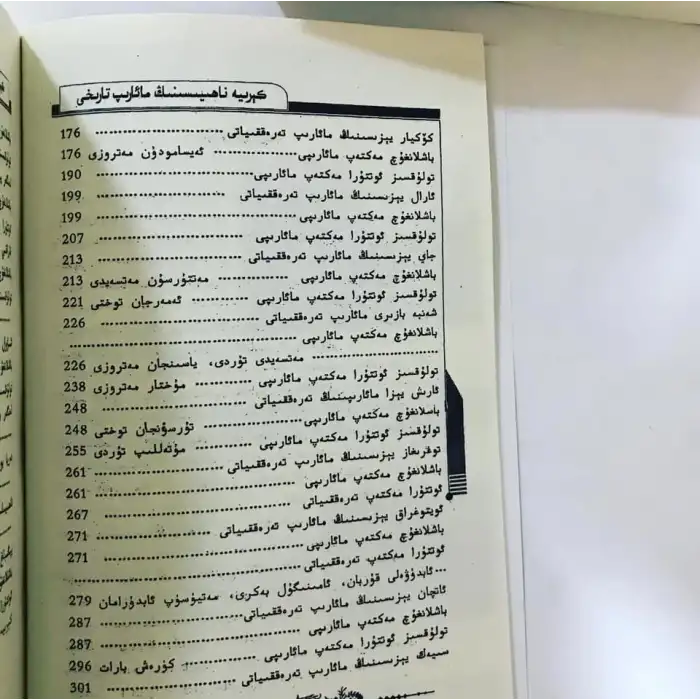 كېرىيە ناھىيىسىنىڭ مائارىپ تارىخى
كۆكيار يېزىسىنىڭ مائارىپ تەرەققىياتى ............ 176
باشلانغۇچ مەكتەپ مائارىپى ............ ئەيسامودۇن مەتروزى 176
تولۇقسىز ئوتتۇرا مەكتەپ مائارىپى ............ 190
ئارال يېزىسىنىڭ مائارىپ تەرەققىياتى ............ 199
باشلانغۇچ مەكتەپ مائارىپى ............ 199
تولۇقسىز ئوتتۇرا مەكتەپ مائارىپى ............ 207
جاي يېزىسىنىڭ مائارىپ تەرەققىياتى ............ 213
باشلانغۇچ مەكتەپ مائارىپى ............ مەتتۇرسۇن مەتسەيدى 213
تولۇقسىز ئوتتۇرا مەكتەپ مائارىپى ............ ئەمەرجان توختى 221
شەنبە بازىرى مائارىپ تەرەققىياتى ............ 226
باشلانغۇچ مەكتەپ مائارىپى ............
............ مەتسەيدى تۇردى، ياسىنجان مەتروزى 226
تولۇقسىز ئوتتۇرا مەكتەپ مائارىپى ............ مۇختار مەتروزى 238
ئارىش يېزا مائارىپىنىڭ تەرەققىياتى ............ 248
باسلانغۇچ مەكتەپ مائارىپى ............ تۇرسۇنجان توختى 248
تولۇقسىز ئوتتۇرا مەكتەپ مائارىپى ............ مۇتەللىپ تۇردى 255
توقرىغاز يېزىسىنىڭ مائارىپ تەرەققىياتى ............ 261
باشلانغۇچ مەكتەپ مائارىپى ............ 261
ئوتتۇرا مەكتەپ مائارىپ تەرەققىياتى ............ 267
ئويتوغراق يېزىسىنىڭ مائارىپ تەرەققىياتى ............ 271
باشلانغۇچ مەكتەپ مائارىپى ............ 271
ئوتتۇرا مەكتەپ مائارىپ تەرەققىياتى ............
... ئابدۇۋەلى قۇربان، ئامىنىگۈل بەكرى، مەتيۈسۈپ ئابدۇرامان 279
ئاتچان يېزىسىنىڭ مائارىپ تەرەققىياتى ............ 287
باشلانغۇچ مەكتەپ مائارىپى ............ 287
تولۇقسىز ئوتتۇرا مەكتەپ مائارىپى ............ كۈرەش بارات 296
سىيەك يېزىسىنىڭ مائارىپ تەرەققىياتى ............ 301